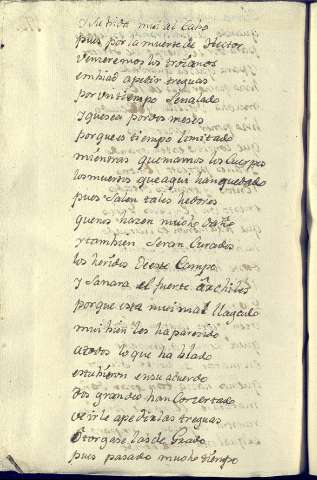 y su vida mui al Cabo
pues por la muerte de Hector
venzeremos los troianos
embiad a pedir treguas
por vn tiempo señalado
y que sea por dos meses
porque es tiempo limitado
mientras quemamos los Cuerpos
los muertos que aqui han quedado
pues salen tales hedores
que nos hazen mucho daño
y tambien seran Curados
los heridos de este Campo
y sanara el fuerte Archiles
porque esta mui mal llagado
mui bien les ha parezido
a todos lo que ha blado
estubieron en su acuerdo
dos grandes han Conzertado
de irle a pedir las treguas
Otorgaselas de Grado
pues pasado mucho tiempo